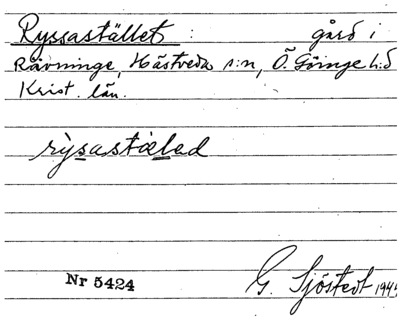 Ryssastället : gård i
Rävninge, Hästveda s:n, Ö. Göinge h:d
Krist. län.
rỳsastæ̀lad
Nr 5424
G. Sjöstedt